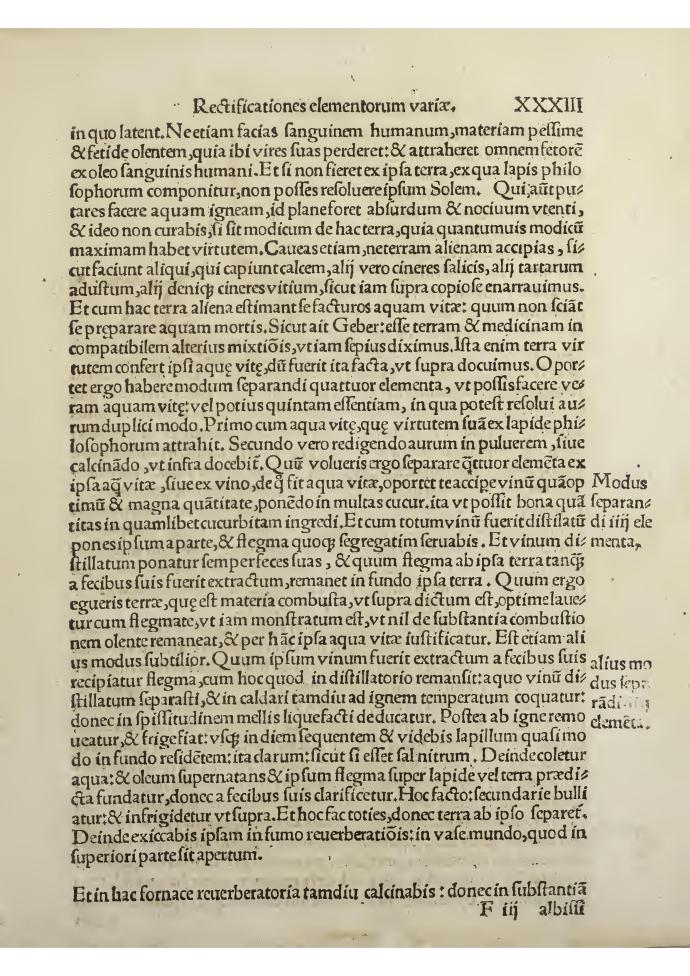 Rectificationes elementorum variæ. XXXIII
in quo latent. Ne etiam facias ſanguinem humanum, materiam peſſime
& fetide olentem, quia ibi vires ſuas perderet: & attraheret omnem fetorē
ex oleo ſanguinis humani. Et ſi non fieret ex ipſa terra, ex qua lapis philo
ſophorum componitur, non poſſes reſoluere ipſum Solem. Qui aūt pu⸗
tares facere aquam igneam, id plane foret abſurdum & nociuum vtenti,
& ideo non curabis, ſi ſit modicum de hac terra, quia quantumuis modicū
maximam habet virtutem. Caueas etiam, ne terram alienam accipias, ſi⸗
cut faciunt aliqui, qui capiunt calcem, alij vero cineres ſalicis, alij tartarum
aduſtum, alij deniqꝫ cineres vitium, ſicut iam ſupra copioſe enarrauimus.
Et cum hac terra aliena eſtimant ſe facturos aquam vitæ: quum non ſciāt
ſe preparare aquam mortis. Sicut ait Geber: eſſe terram & medicinam in
compatibilem alterius mixtiōis, vt iam ſepius diximus. Iſta enim terra vir
tutem confert ipſi aquę vitę, dū fuerit ita facta, vt ſupra docuimus. Opor⸗
tet ergo habere modum ſeparandi quattuor elementa, vt poſſis facere ve⸗
ram aquam vitę: vel potius quintam eſſentiam, in qua poteſt reſolui au⸗
rum duplici modo. Primo cum aqua vitę, quę virtutem ſuā ex lapide phi⸗
loſophorum attrahit. Secundo vero redigendo aurum in puluerem, ſiue
calcinādo, vt infra docebit̄. Quū volueris ergo ſeparare q̄ttuor elemēta ex
ipſa aq̄ vitæ, ſiue ex vino, de q̄ fit aqua vitæ, oportet te accipe vinū quāop
timū & magna quātitate, ponēdo in multas cucur. ita vt poſſit bona quā
titas in quamlibet cucurbitam ingredi. Et cum totum vinū fuerit diſtilatū
pones ipſum a parte, & flegma quoqꝫ ſegregatim ſeruabis. Et vinum di⸗
ſtillatum ponatur ſemper feces ſuas, & quum flegma ab ipſa terra tanqꝫ
a fecibus ſuis fuerit extractum, remanet in fundo ipſa terra. Quum ergo
egueris terræ, quę eſt materia combuſta, vt ſupra dictum eſt, optime laue⸗
tur cum flegmate, vt iam monſtratum eſt, vt nil de ſubſtantia combuſtio
nem olente remaneat, & per hāc ipſa aqua vitæ iuſtificatur. Eſt etiam ali
us modus ſubtilior. Quum ipſum vinum fuerit extractum a fecibus ſuis
recipiatur flegma, cum hoc quod in diſtillatorio remanſit: a quo vinū di⸗
ſtillatum ſeparaſti, & in caldari tamdiu ad ignem temperatum coquatur:
donec in ſpiſſitudinem mellis liquefacti deducatur. Poſtea ab igne remo
ueatur, & frigefiat: vſqꝫ in diem ſequentem & videbis lapillum quaſi mo
do in fundo reſidētem: ita clarum: ſicut ſi eſſet ſal nitrum. Deinde coletur
aqua: & oleum ſupernatans & ipſum flegma ſuper lapide vel terra prædi⸗
cta fundatur, donec a fecibus ſuis clarificetur. Hoc facto: ſecundarie bulli
atur: & infrigidetur vt ſupra. Et hoc fac toties, donec terra ab ipſo ſeparet̄.
Deinde exiccabis ipſam in fumo reuerberatiōis: in vaſe mundo, quod in
ſuperiori parte ſit apertum.
Et in hac fornace reuerberatoria tamdiu calcinabis: donec in ſubſtantiā
F iij albiſſi
Modus
ſeparan⸗
di iiij ele
menta,
alius mo
dus ſepa
elemēta.